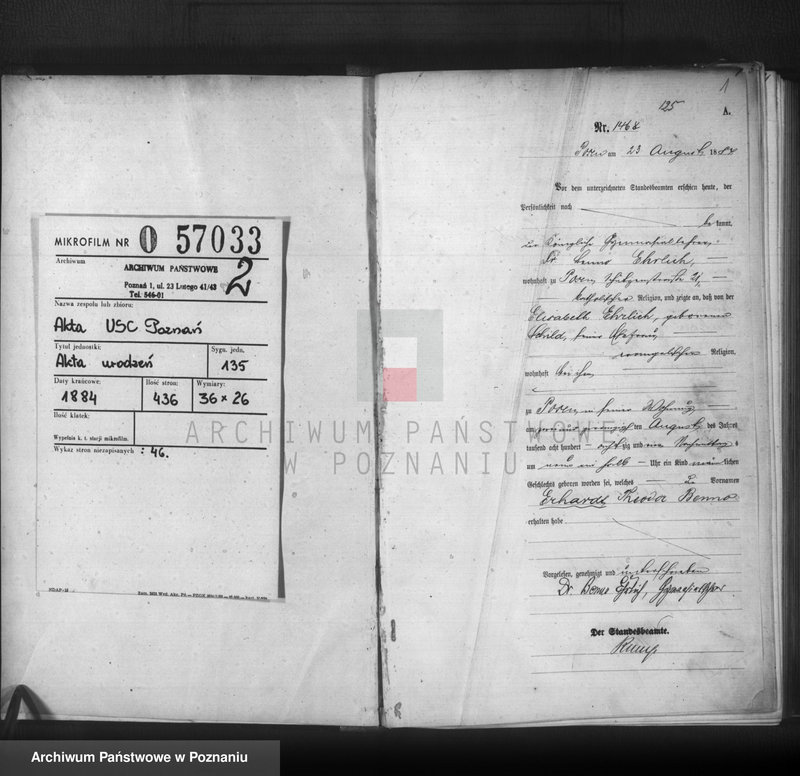 MIKROFILM NR 0 57033
Archiwum
ARCHIWUM PAŃSTWOWE
Poznań 1, ul. 23 Lutego 41/43
Tel. 546-01
2
Nazwa zespołu lub zbioru:
Akta USC Poznań
Tytuł jednostki:
Akta urodzeń
Sygn. jedn.
135
Daty krańcowe:
1884
Ilość stron:
436
Wymiary:
36 x 26
Ilość klatek:
Wypełnia k. t. stacji mikrofilm.
Wykaz stron niezapisanych : 46.
1
125
A.
Nr. 1468
Posen am 23 August 1884
Vor dem unterzeichneten Standesbeamten erschien heute, der
Persönlichkeit nach
be kannt,
der Königliche Gymnasiallehrer
Dr. Benno Ehrlich,
wohnhaft zu Posen, Schützenstraße 21,
katholischer Religion, und zeigte an, daß von der
Elisabeth Ehrlich, geborenen
Schild, seiner Ehefrau,
evangelischer Religion,
wohnhaft bei ihm,
zu Posen, in seiner Wohnung
am zwei und zwanzigsten August des Jahres
tausend acht hundert achtzig und vier Nachmittags
um neun ein halb Uhr ein Kind männlichen
Geschlechts geboren worden sei, welches die Vornamen
Erhardt Theodor Benno
erhalten habe
Vorgelesen, genehmigt und unterschrieben
Dr. Benno Ehrlich, Gymnasiallehrer
Der Standesbeamte.
ARCHIWUM PAŃSTWOWE
W POZNANIU
Archiwum Państwowe w Poznaniu